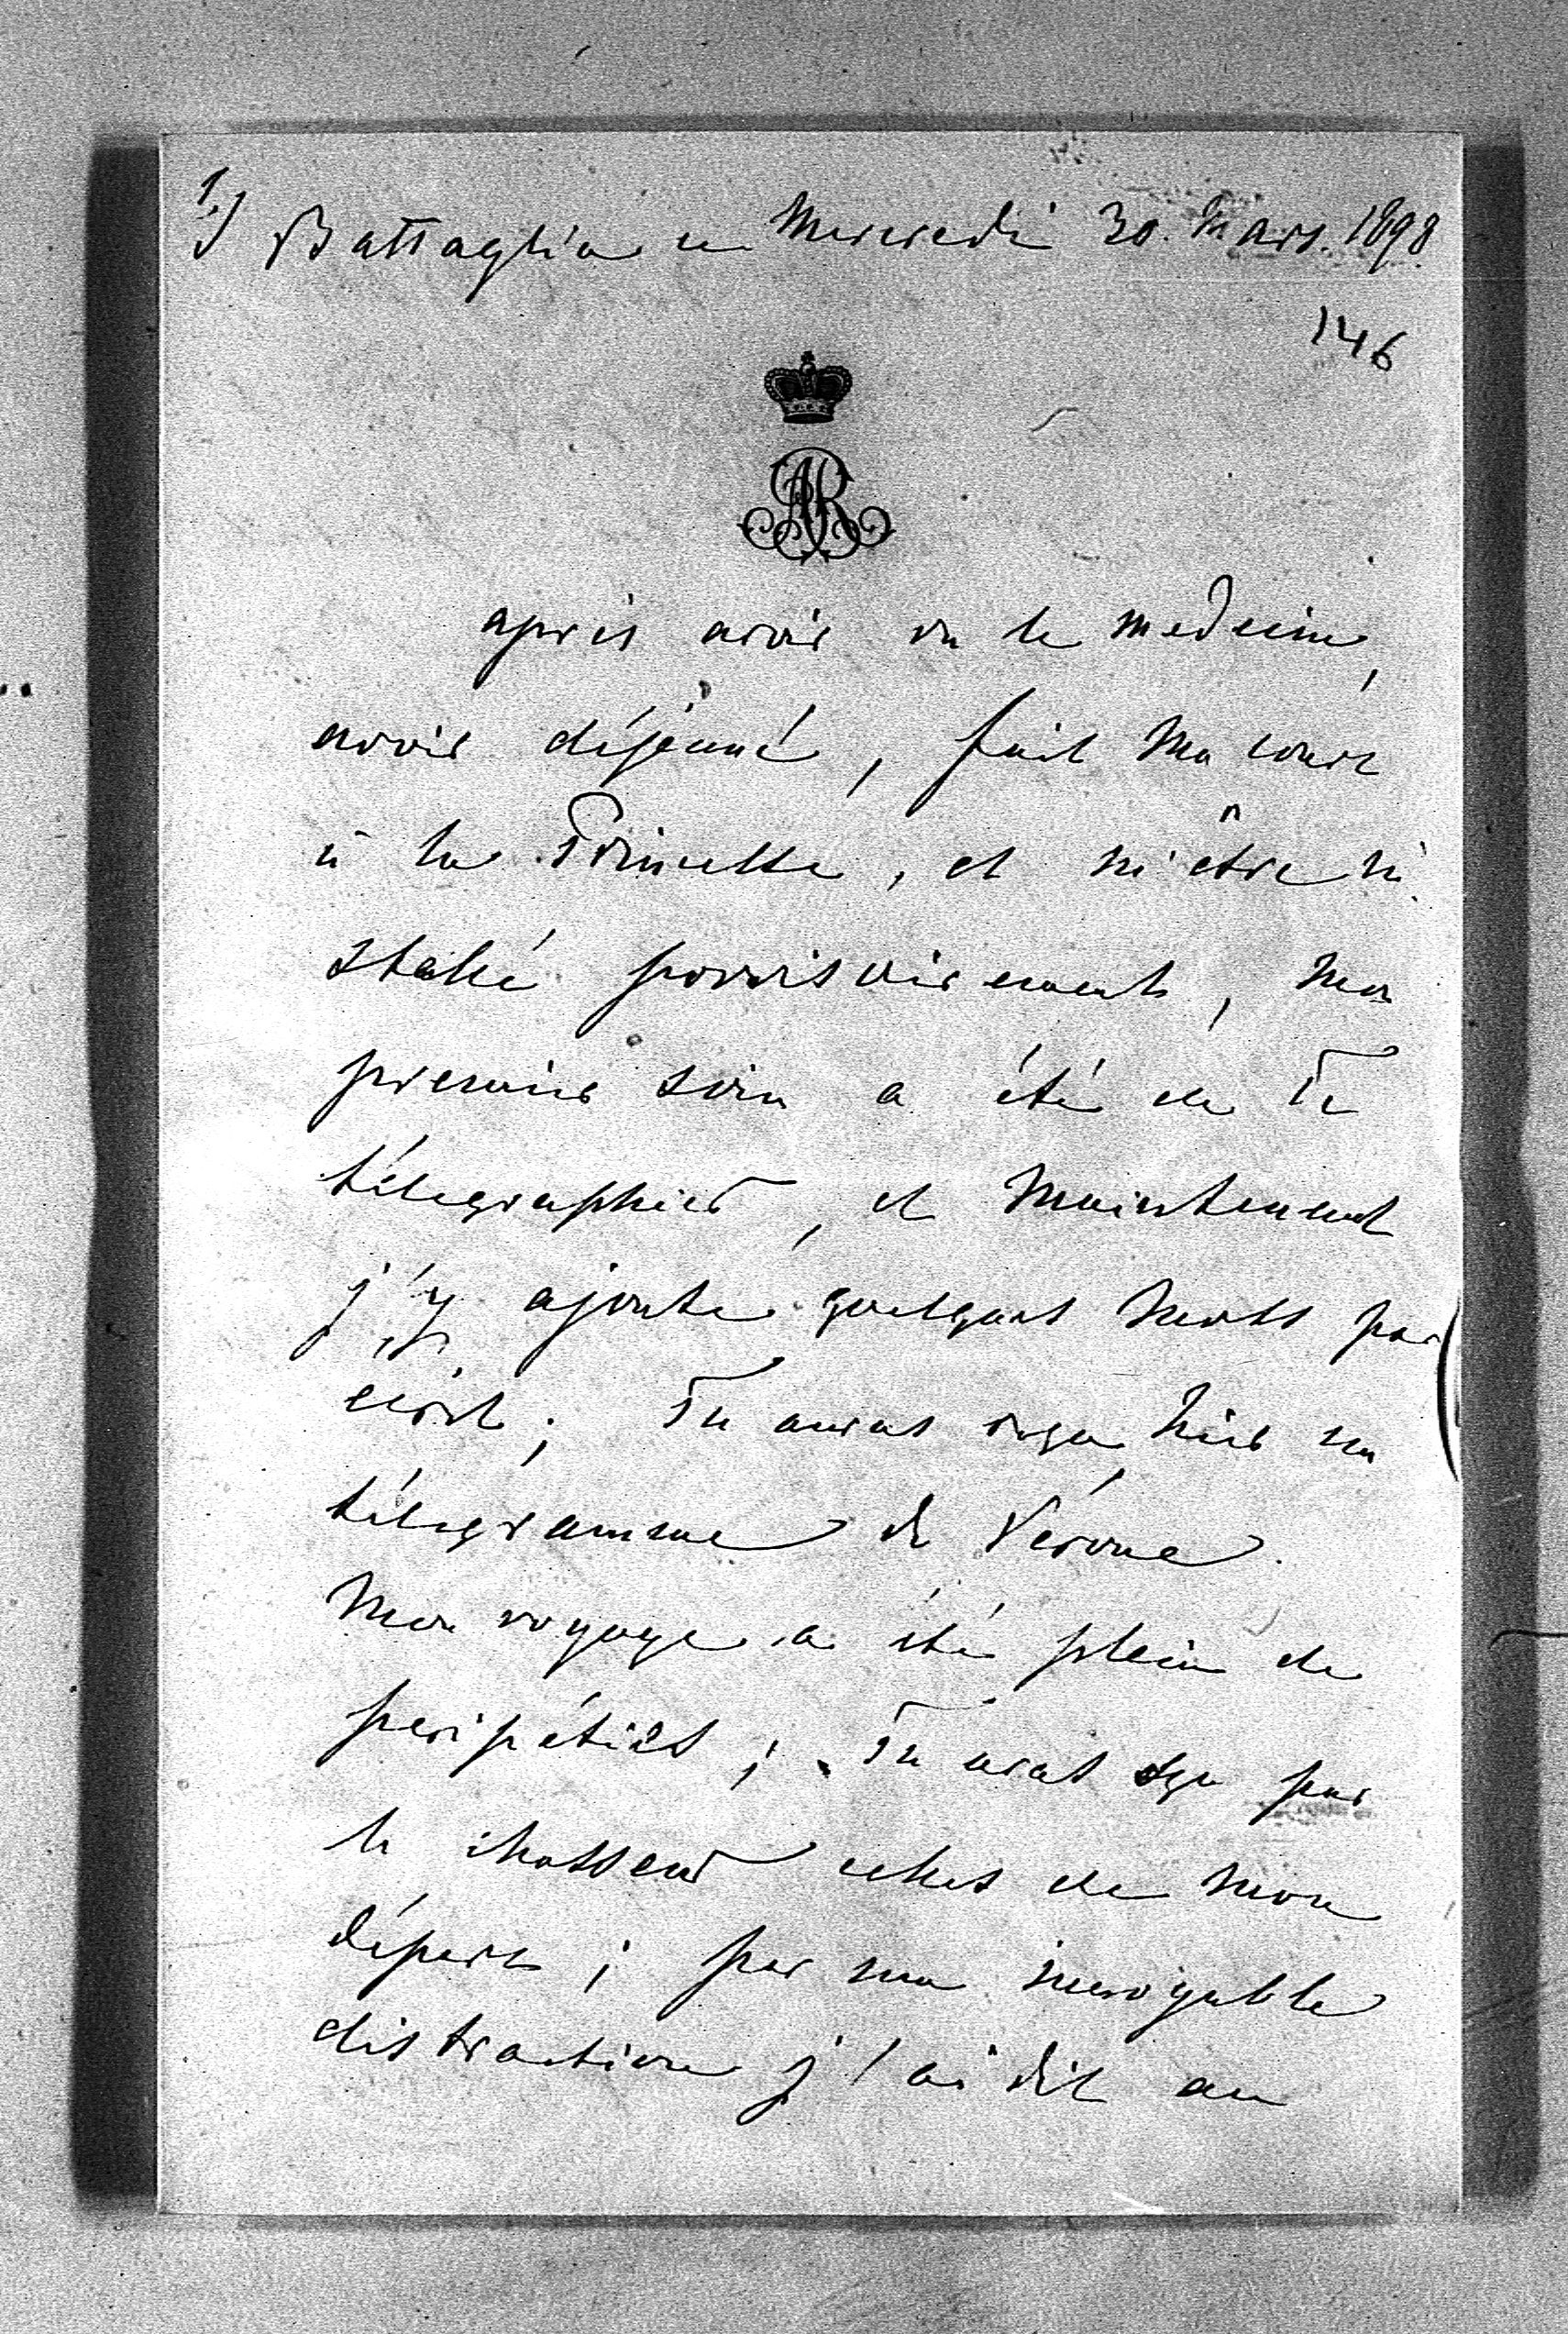 1.) Battaglia ce Mercredi 30. Mars. 1898
146
AR
après avoir vu le medecin,
avoir déjeuné, fait ma cour
à la Princesse, et m'être in
stallé provisoirement, mon
premier soin a été de Te
télegraphier, et maintenant
j'y ajoute quelques mots par
écrit; Tu auras reçu hier un
télegramme de Vérone.
Mon voyage a été plein de
peripéties; Tu auras sçu par
le chasseur celles de mon
départ; par ma incroyable
distraction j'ai dit au